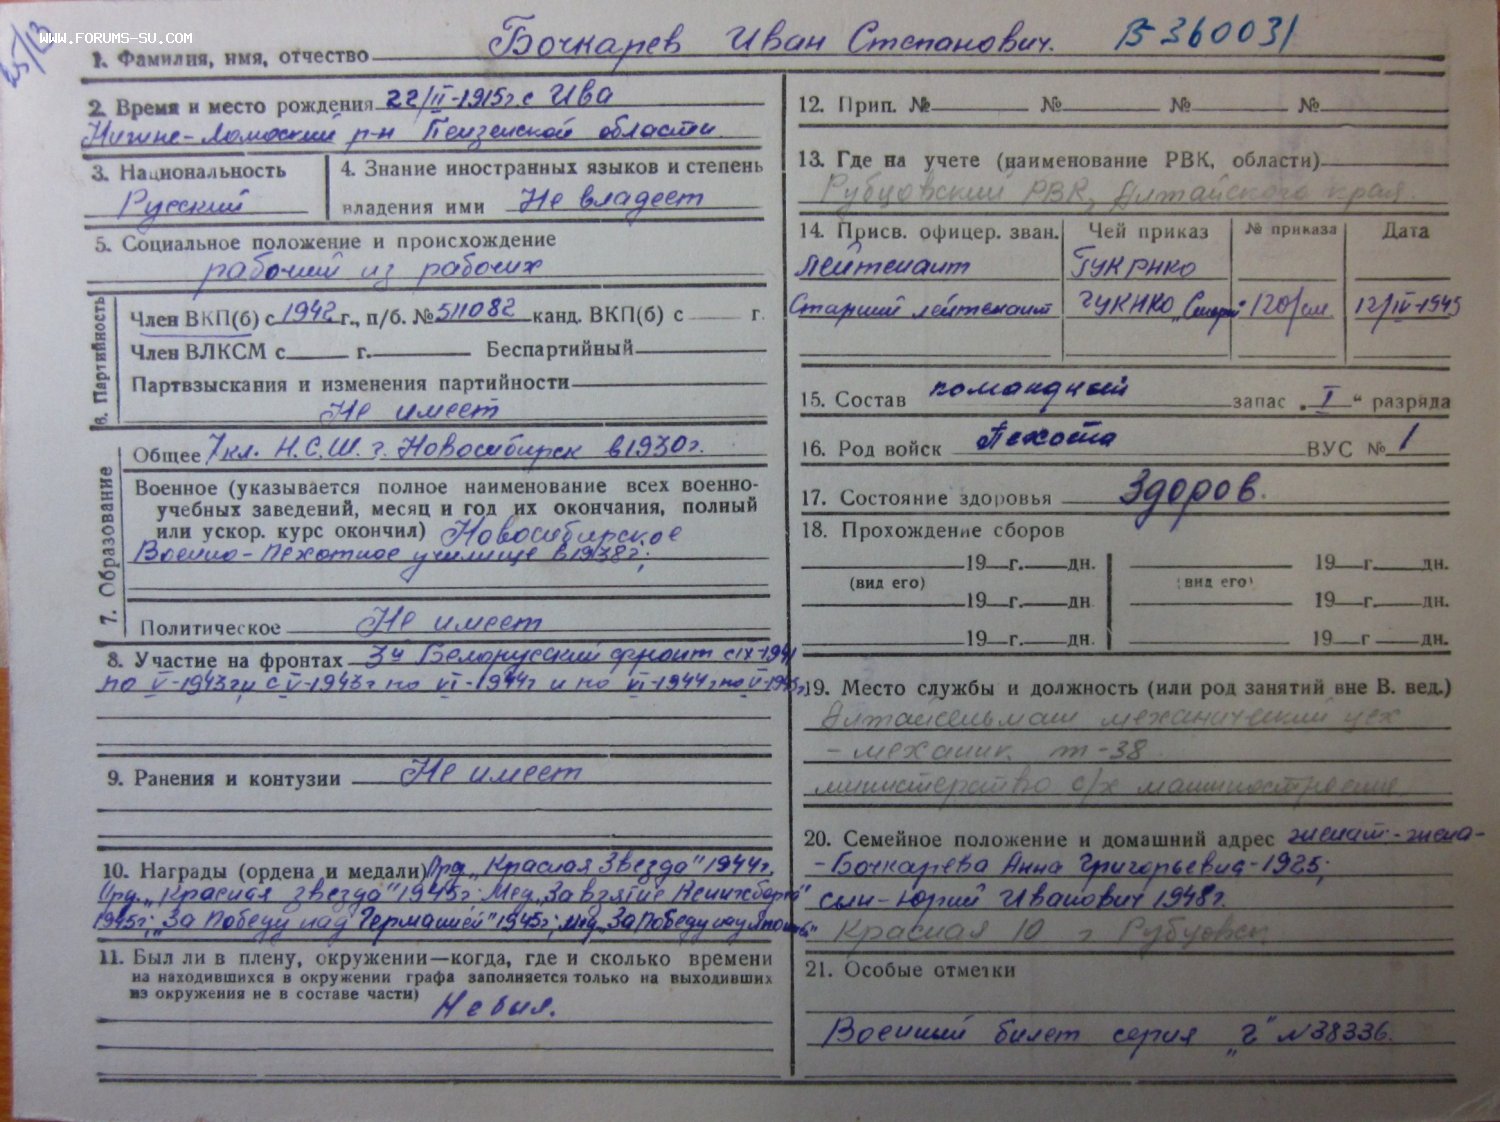 WWW.FORUMS-SU.COM
25/13
1. Фамилия, имя, отчество Бочкарев Иван Степанович. В 360031
2. Время и место рождения 22/II-1915г. с Ива
Нижне-Ломовский р-н Пензенской области
3. Национальность
Русский
4. Знание иностранных языков и степень
владения ими Не владеет
5. Социальное положение и происхождение
рабочий из рабочих
6. Партийность
Член ВКП(б) с 1942 г., п/б. № 511082 канд. ВКП(б) с г.
Член ВЛКСМ с г. Беспартийный
Партвзыскания и изменения партийности
Не имеет
7. Образование
Общее 7 кл. Н.С.Ш. г. Новосибирск в 1930 г.
Военное (указывается полное наименование всех военно-
учебных заведений, месяц и год их окончания, полный
или ускор. курс окончил) Новосибирское
Военно-пехотное училище в 1938 г;
Политическое Не имеет
8. Участие на фронтах 3й Белорусский фронт с IX-1941
по V-1943 г и с V-1943 г по VI-1944 г и по VI-1944 г по V-1945 г
9. Ранения и контузии Не имеет
10. Награды (ордена и медали) Орд. „Красная Звезда" 1944 г.
Орд. „Красная звезда" 1945 г; Мед. „За взятие Кенигсберга"
1945 г; „За Победу над Германией" 1945 г; Мед. „За Победу над Японией"
11. Был ли в плену, окружении—когда, где и сколько времени
на находившихся в окружении графа заполняется только на выходивших
из окружения не в составе части)
Не был.
12. Прип. № № № №
13. Где на учете (наименование РВК, области)
Рубцовский РВК, Алтайского края.
14. Присв. офицер. зван. Чей приказ № приказа Дата
Лейтенант ГУКРНКО
Старший лейтенант ГУКНКО 120/см 12/IV-1945
15. Состав командный запас „I" разряда
16. Род войск Пехота ВУС № 1
17. Состояние здоровья Здоров.
18. Прохождение сборов
19 г. дн. 19 г. дн.
(вид его) (вид его)
19 г. дн 19 г. дн.
19 г. дн. 19 г дн.
19. Место службы и должность (или род занятий вне В. вед.)
Алтайсельмаш механический цех
- механик т-38
министерство с/х машиностроения
20. Семейное положение и домашний адрес женат-жена-
-Бочкарева Анна Григорьевна-1925;
сын-Юрий Иванович 1948 г.
Красная 10 г Рубцовск
21. Особые отметки
Военный билет серия „Г" №38336.